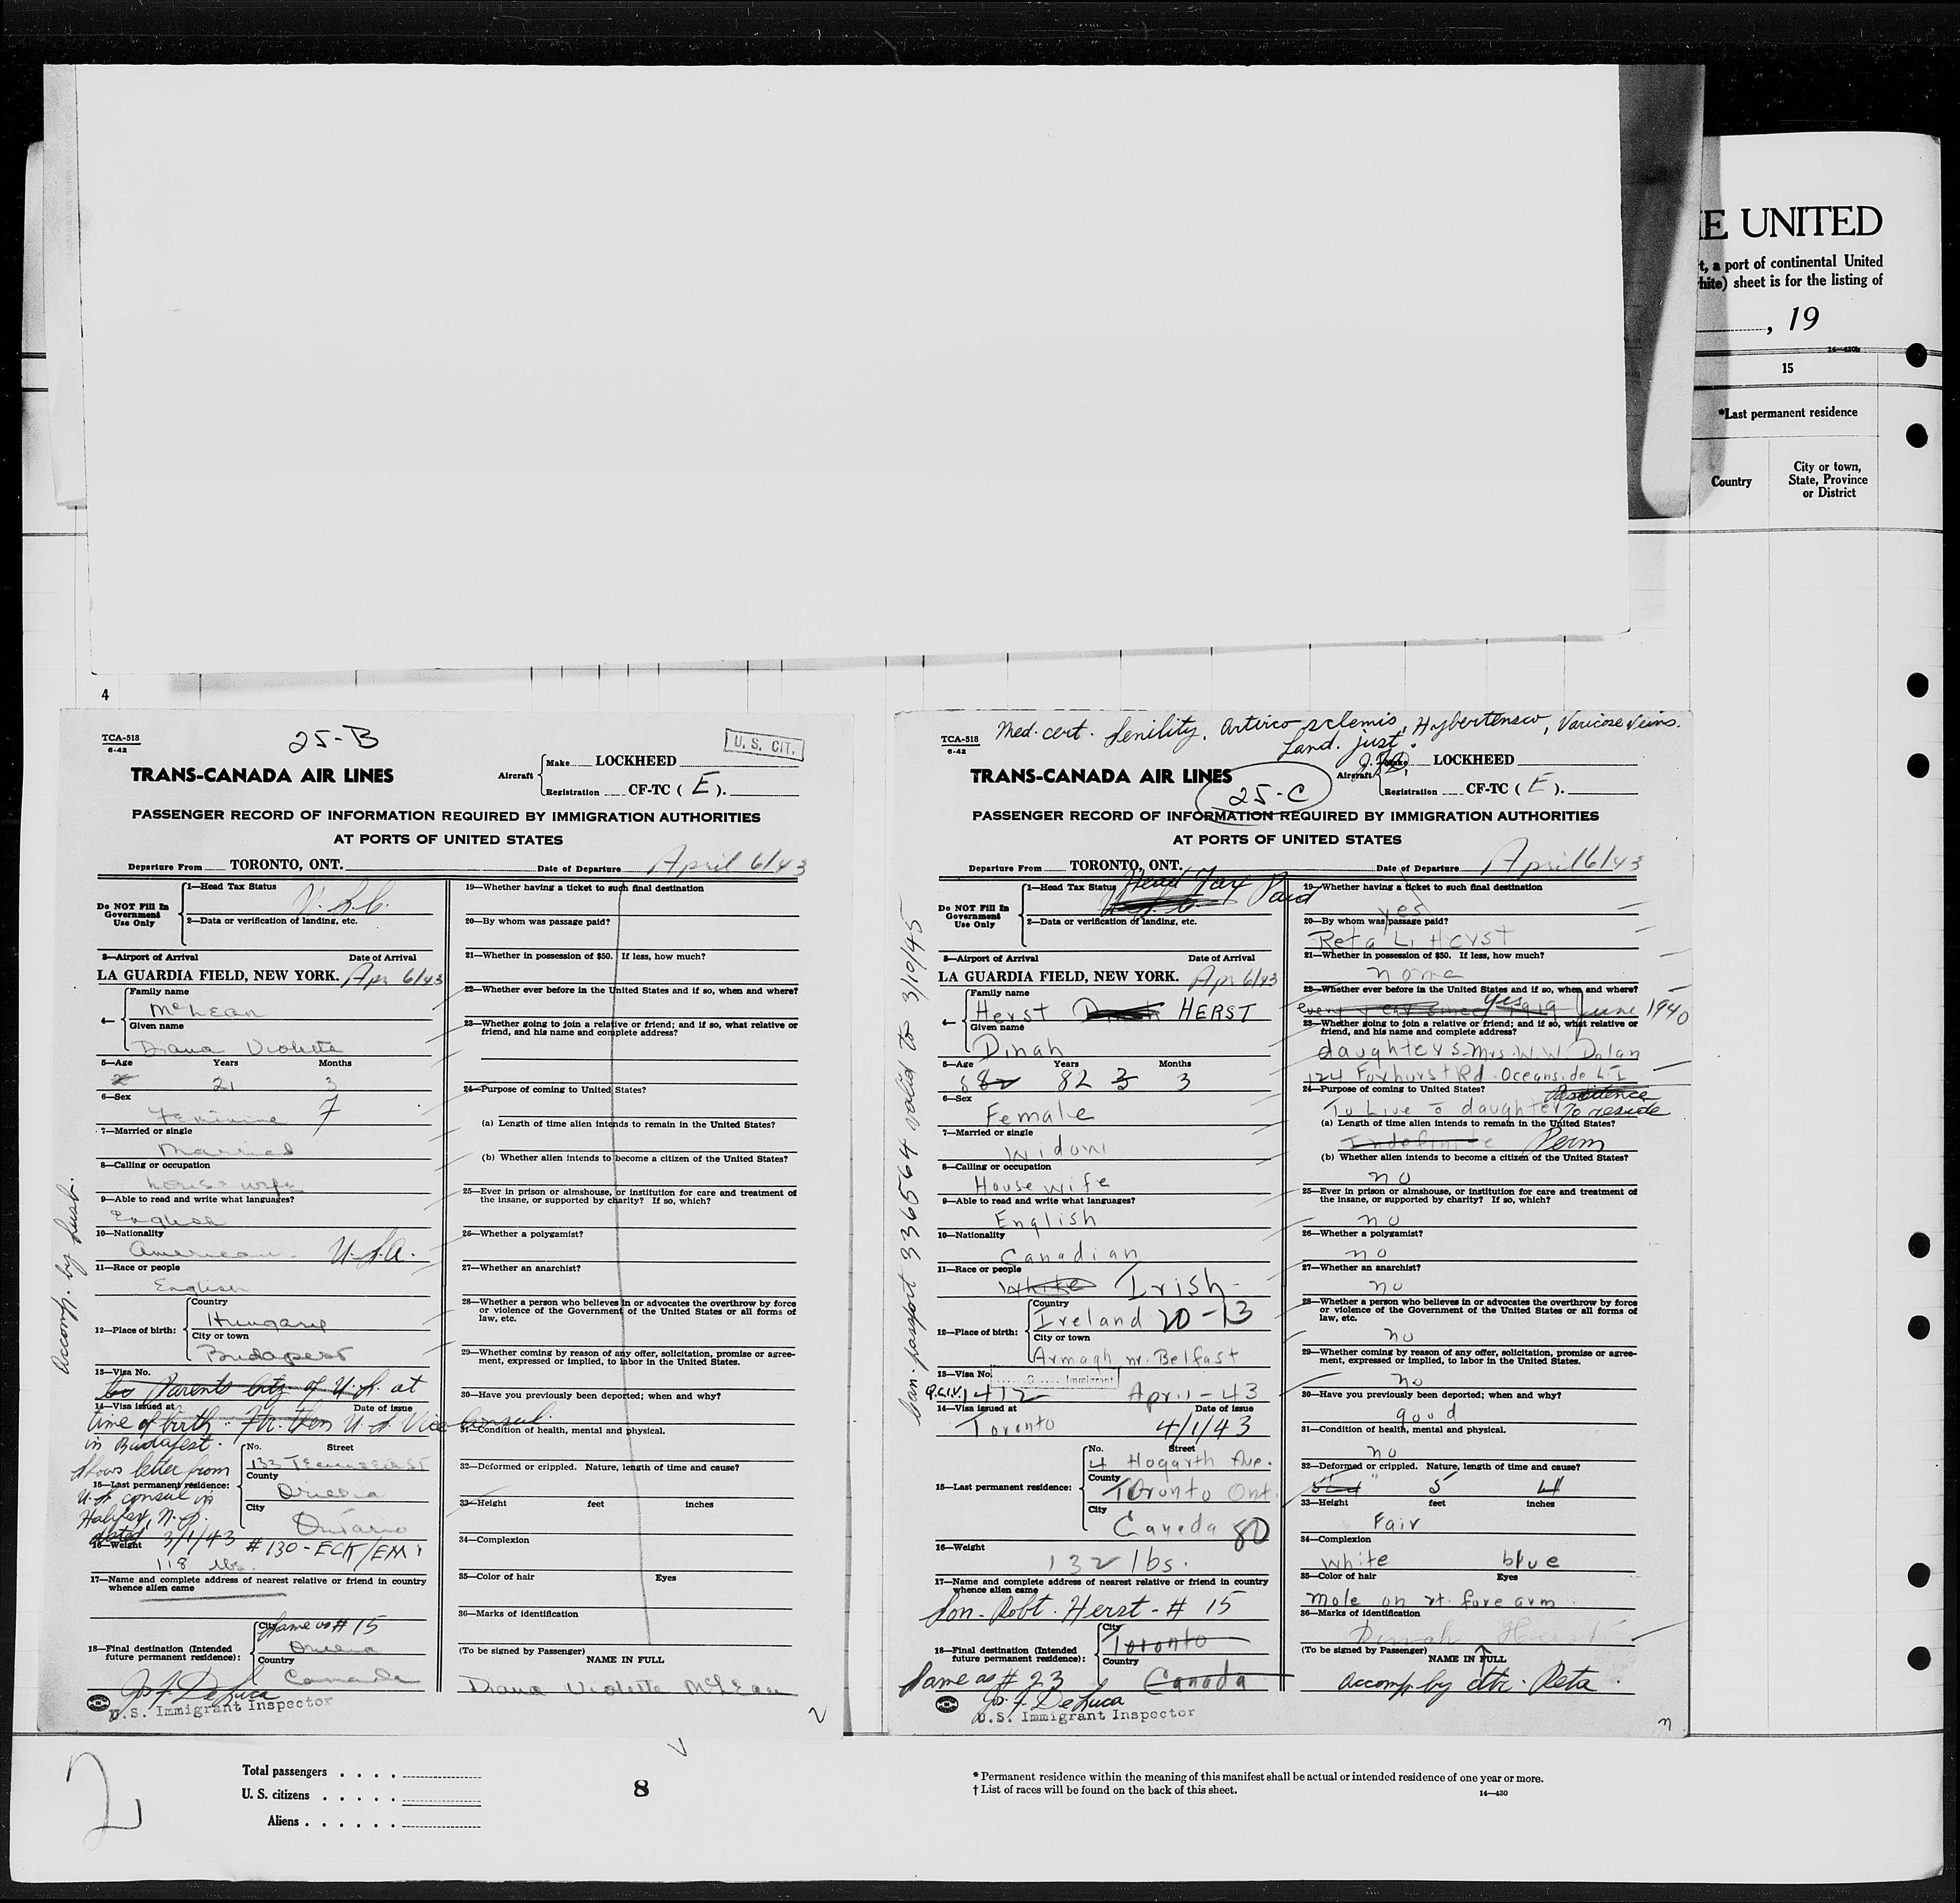 E UNITED
t, a port of continental United
hite) sheet is for the listing of
, 19
14—430b
15
*Last permanent residence
Country
City or town,
State, Province
or District
4
25-B
U. S. CIT.
TCA-518
6-42
TRANS-CANADA AIR LINES
Aircraft
Make LOCKHEED
Registration CF-TC ( E ).
PASSENGER RECORD OF INFORMATION REQUIRED BY IMMIGRATION AUTHORITIES
AT PORTS OF UNITED STATES
Departure From TORONTO, ONT.
Date of Departure April 6/43
Do NOT Fill In
Government
Use Only
1—Head Tax Status
U.S.C.
2—Data or verification of landing, etc.
3—Airport of Arrival Date of Arrival
LA GUARDIA FIELD, NEW YORK. Apr 6/43
4—
Family name
McLean
Given name
Diana Violette
5—Age Years Months
21 3
6—Sex
Feminine
7—Married or single
Married
8—Calling or occupation
housewife
9—Able to read and write what languages?
English
10—Nationality
American - U.S.A.
11—Race or people
English
12—Place of birth:
Country
Hungary
City or town
Budapest
13—Visa No.
Parents Citz. of U.S. at
14—Visa issued at Date of issue
time of birth. Fr. then U.S. Vice Consul
in Budapest.
Shows letter from
U.S. consul in
Halifax, N.S.
dated 3/1/43 #130-ECK/EM
15—Last permanent residence:
No. Street
133
County
Orillia
City
Ontario
16—Weight
118 lbs.
17—Name and complete address of nearest relative or friend in country
whence alien came
18—Final destination (Intended
future permanent residence):
City
Same as #15
Orillia
Country
Canada
Jos. F. DeLuca
U.S. Immigrant Inspector
Accomp. by husb.
19—Whether having a ticket to such final destination
20—By whom was passage paid?
21—Whether in possession of $50. If less, how much?
22—Whether ever before in the United States and if so, when and where?
23—Whether going to join a relative or friend; and if so, what relative or
friend, and his name and complete address?
24—Purpose of coming to United States?
(a) Length of time alien intends to remain in the United States?
(b) Whether alien intends to become a citizen of the United States?
25—Ever in prison or almshouse, or institution for care and treatment of
the insane, or supported by charity? If so, which?
26—Whether a polygamist?
27—Whether an anarchist?
28—Whether a person who believes in or advocates the overthrow by force
or violence of the Government of the United States or all forms of
law, etc.
29—Whether coming by reason of any offer, solicitation, promise or agree-
ment, expressed or implied, to labor in the United States.
30—Have you previously been deported; when and why?
31—Condition of health, mental and physical.
32—Deformed or crippled. Nature, length of time and cause?
33—Height feet inches
34—Complexion
35—Color of hair Eyes
36—Marks of identification
(To be signed by Passenger)
NAME IN FULL
Diana Violette McLean
2
Med. cert. Senility, Arterio sclerosis, Hypertension, Varicose Veins.
Land. just.
TCA-518
6-42
TRANS-CANADA AIR LINES
25-C
Aircraft
Make LOCKHEED
Registration CF-TC ( E ).
PASSENGER RECORD OF INFORMATION REQUIRED BY IMMIGRATION AUTHORITIES
AT PORTS OF UNITED STATES
Departure From TORONTO, ONT.
Date of Departure April 6/43
Do NOT Fill In
Government
Use Only
1—Head Tax Status Head Tax Paid
2—Data or verification of landing, etc.
3—Airport of Arrival Date of Arrival
LA GUARDIA FIELD, NEW YORK. Apr 6/43
4—
Family name
Herst HERST
Given name
Dinah
5—Age Years Months
82 3
6—Sex
Female
7—Married or single
Widow
8—Calling or occupation
Housewife
9—Able to read and write what languages?
English
10—Nationality
Canadian
11—Race or people
White Irish
12—Place of birth:
Country
Ireland 20-13
City or town
Armagh nr. Belfast
13—Visa No. Immigrant
Q.C.I.V. 1412 Apr. 1-43
14—Visa issued at Date of issue
Toronto 4/1/43
15—Last permanent residence:
No. Street
4 Hogarth Ave.
County
Toronto Ont.
City
Canada 80
16—Weight
132 lbs.
17—Name and complete address of nearest relative or friend in country
whence alien came
Son-Robt. Herst-#15
18—Final destination (Intended
future permanent residence):
City
Toronto
Country
Canada
Same as #23
Jos. F. DeLuca
U.S. Immigrant Inspector
Can. passport 336564 valid to 3/10/45
19—Whether having a ticket to such final destination
yes
20—By whom was passage paid?
Reta L. Herst
21—Whether in possession of $50. If less, how much?
none
22—Whether ever before in the United States and if so, when and where?
every year since 1919 yes June 1940
23—Whether going to join a relative or friend; and if so, what relative or
friend, and his name and complete address?
daughters-Mrs. W.W. Dolan
124 Foxhurst Rd. Oceanside L.I.
24—Purpose of coming to United States? Residence
To Live c daughter To reside
(a) Length of time alien intends to remain in the United States?
Indefinite Perm
(b) Whether alien intends to become a citizen of the United States?
no
25—Ever in prison or almshouse, or institution for care and treatment of
the insane, or supported by charity? If so, which?
no
26—Whether a polygamist?
no
27—Whether an anarchist?
no
28—Whether a person who believes in or advocates the overthrow by force
or violence of the Government of the United States or all forms of
law, etc.
no
29—Whether coming by reason of any offer, solicitation, promise or agree-
ment, expressed or implied, to labor in the United States.
no
30—Have you previously been deported; when and why?
good
31—Condition of health, mental and physical.
no
32—Deformed or crippled. Nature, length of time and cause?
5 4
33—Height feet inches
Fair
34—Complexion
white blue
35—Color of hair Eyes
Mole on rt. fore arm
36—Marks of identification
Dinah Herst
(To be signed by Passenger)
NAME IN FULL
Accomp. by dtr. Reta
n
2
Total passengers . . . .
U. S. citizens . . . . .
Aliens . . . . . .
8
* Permanent residence within the meaning of this manifest shall be actual or intended residence of one year or more.
† List of races will be found on the back of this sheet.
14—430